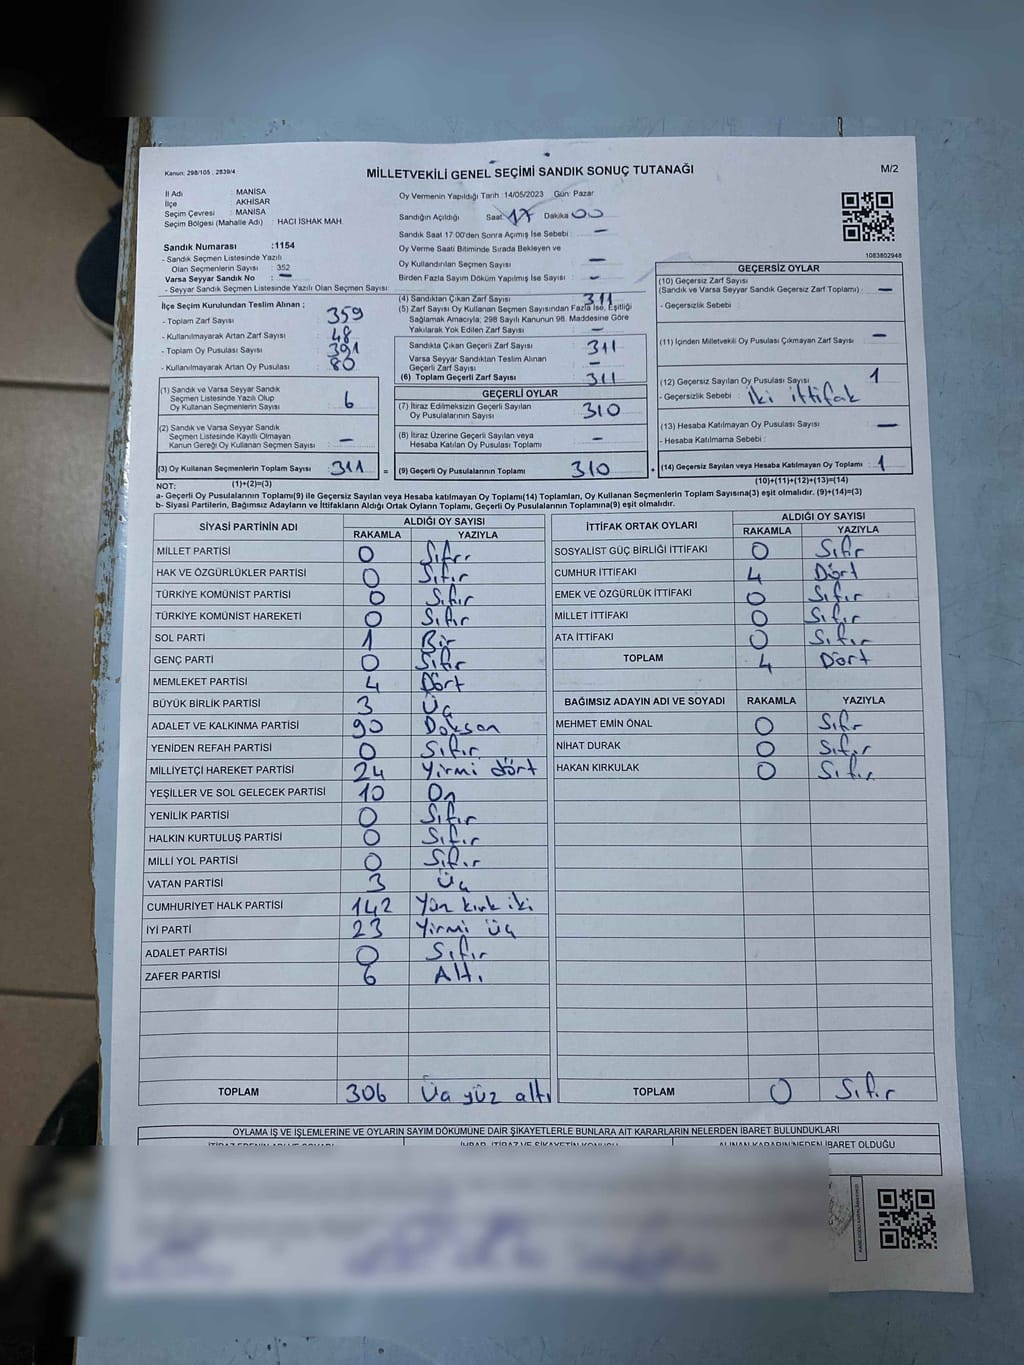 Kanun: 298/105 , 2839/4
MİLLETVEKİLİ GENEL SEÇİMİ SANDIK SONUÇ TUTANAĞI
M/2
İl Adı : MANİSA
İlçe : AKHİSAR
Seçim Çevresi : MANİSA
Seçim Bölgesi (Mahalle Adı) : HACI İSHAK MAH.
Oy Vermenin Yapıldığı Tarih : 14/05/2023 Gün: Pazar
Sandığın Açıldığı Saat 17 Dakika 00
Sandık Saat 17:00'den Sonra Açılmış İse Sebebi : —
Oy Verme Saati Bitiminde Sırada Bekleyen ve
Oy Kullandırılan Seçmen Sayısı —
Birden Fazla Sayım Döküm Yapılmış İse Sayısı : -
Sandık Numarası :1154
- Sandık Seçmen Listesinde Yazılı
Olan Seçmenlerin Sayısı : 352
Varsa Seyyar Sandık No : —
- Seyyar Sandık Seçmen Listesinde Yazılı Olan Seçmen Sayısı :
1083802948
İlçe Seçim Kurulundan Teslim Alınan ;
- Toplam Zarf Sayısı 359
- Kullanılmayarak Artan Zarf Sayısı 48
- Toplam Oy Pusulası Sayısı 391
- Kullanılmayarak Artan Oy Pusulası 80
(1) Sandık ve Varsa Seyyar Sandık
Seçmen Listesinde Yazılı Olup
Oy Kullanan Seçmenlerin Sayısı 6
(2) Sandık ve Varsa Seyyar Sandık
Seçmen Listesinde Kayıtlı Olmayan
Kanun Gereği Oy Kullanan Seçmen Sayısı —
(3) Oy Kullanan Seçmenlerin Toplam Sayısı 311 =
(4) Sandıktan Çıkan Zarf Sayısı 311
(5) Zarf Sayısı Oy Kullanan Seçmen Sayısından Fazla İse, Eşitliği
Sağlamak Amacıyla; 298 Sayılı Kanunun 98. Maddesine Göre
Yakılarak Yok Edilen Zarf Sayısı —
Sandıkta Çıkan Geçerli Zarf Sayısı 311
Varsa Seyyar Sandıktan Teslim Alınan
Geçerli Zarf Sayısı —
(6) Toplam Geçerli Zarf Sayısı 311
GEÇERLİ OYLAR
(7) İtiraz Edilmeksizin Geçerli Sayılan
Oy Pusulalarının Sayısı 310
(8) İtiraz Üzerine Geçerli Sayılan veya
Hesaba Katılan Oy Pusulası Toplamı —
(9) Geçerli Oy Pusulalarının Toplamı 310 +
GEÇERSİZ OYLAR
(10) Geçersiz Zarf Sayısı
(Sandık ve Varsa Seyyar Sandık Geçersiz Zarf Toplamı) : —
- Geçersizlik Sebebi :
(11) İçinden Milletvekili Oy Pusulası Çıkmayan Zarf Sayısı —
(12) Geçersiz Sayılan Oy Pusulası Sayısı 1
- Geçersizlik Sebebi : İki ittifak
(13) Hesaba Katılmayan Oy Pusulası Sayısı —
- Hesaba Katılmama Sebebi :
(14) Geçersiz Sayılan veya Hesaba Katılmayan Oy Toplamı 1
NOT: (1)+(2)=(3) (10)+(11)+(12)+(13)=(14)
a- Geçerli Oy Pusulalarının Toplamı(9) ile Geçersiz Sayılan veya Hesaba katılmayan Oy Toplamı(14) Toplamları, Oy Kullanan Seçmenlerin Toplam Sayısına(3) eşit olmalıdır. (9)+(14)=(3)
b- Siyasi Partilerin, Bağımsız Adayların ve İttifakların Aldığı Ortak Oyların Toplamı, Geçerli Oy Pusulalarının Toplamına(9) eşit olmalıdır.
SİYASİ PARTİNİN ADI ALDIĞI OY SAYISI
RAKAMLA YAZIYLA
MİLLET PARTİSİ 0 Sıfır
HAK VE ÖZGÜRLÜKLER PARTİSİ 0 Sıfır
TÜRKİYE KOMÜNİST PARTİSİ 0 Sıfır
TÜRKİYE KOMÜNİST HAREKETİ 0 Sıfır
SOL PARTİ 1 Bir
GENÇ PARTİ 0 Sıfır
MEMLEKET PARTİSİ 4 Dört
BÜYÜK BİRLİK PARTİSİ 3 Üç
ADALET VE KALKINMA PARTİSİ 90 Doksan
YENİDEN REFAH PARTİSİ 0 Sıfır
MİLLİYETÇİ HAREKET PARTİSİ 24 Yirmi dört
YEŞİLLER VE SOL GELECEK PARTİSİ 10 On
YENİLİK PARTİSİ 0 Sıfır
HALKIN KURTULUŞ PARTİSİ 0 Sıfır
MİLLİ YOL PARTİSİ 0 Sıfır
VATAN PARTİSİ 3 Üç
CUMHURİYET HALK PARTİSİ 142 Yüz kırk iki
İYİ PARTİ 23 Yirmi üç
ADALET PARTİSİ 0 Sıfır
ZAFER PARTİSİ 6 Altı
TOPLAM 306 Üç yüz altı
İTTİFAK ORTAK OYLARI ALDIĞI OY SAYISI
RAKAMLA YAZIYLA
SOSYALİST GÜÇ BİRLİĞİ İTTİFAKI 0 Sıfır
CUMHUR İTTİFAKI 4 Dört
EMEK VE ÖZGÜRLÜK İTTİFAKI 0 Sıfır
MİLLET İTTİFAKI 0 Sıfır
ATA İTTİFAKI 0 Sıfır
TOPLAM 4 Dört
BAĞIMSIZ ADAYIN ADI VE SOYADI RAKAMLA YAZIYLA
MEHMET EMİN ÖNAL 0 Sıfır
NİHAT DURAK 0 Sıfır
HAKAN KIRKULAK 0 Sıfır
TOPLAM 0 Sıfır
OYLAMA İŞ VE İŞLEMLERİNE VE OYLARIN SAYIM DÖKÜMÜNE DAİR ŞİKAYETLERLE BUNLARA AİT KARARLARIN NELERDEN İBARET BULUNDUKLARI
İHBAR, İTİRAZ VE ŞİKAYETİN KONUSU ALINAN KARARIN NEDEN İBARET OLDUĞU